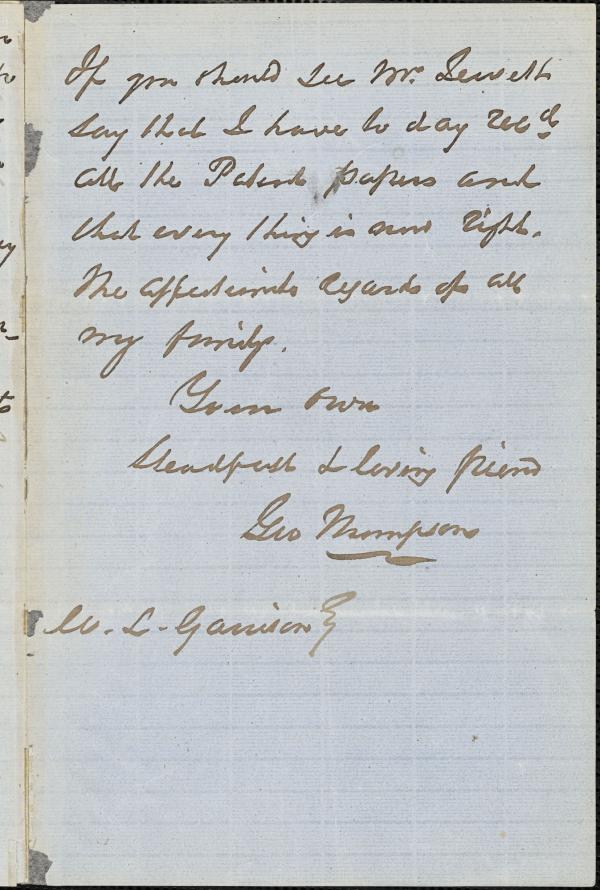 If you should see Mr. Sewell
say that I have to day recd
all the Patent papers and
that every thing is now right.
The affectionate regards of all
my family.
Your own
steadfast & loving friend
Geo Thompson
W. L. Garrison